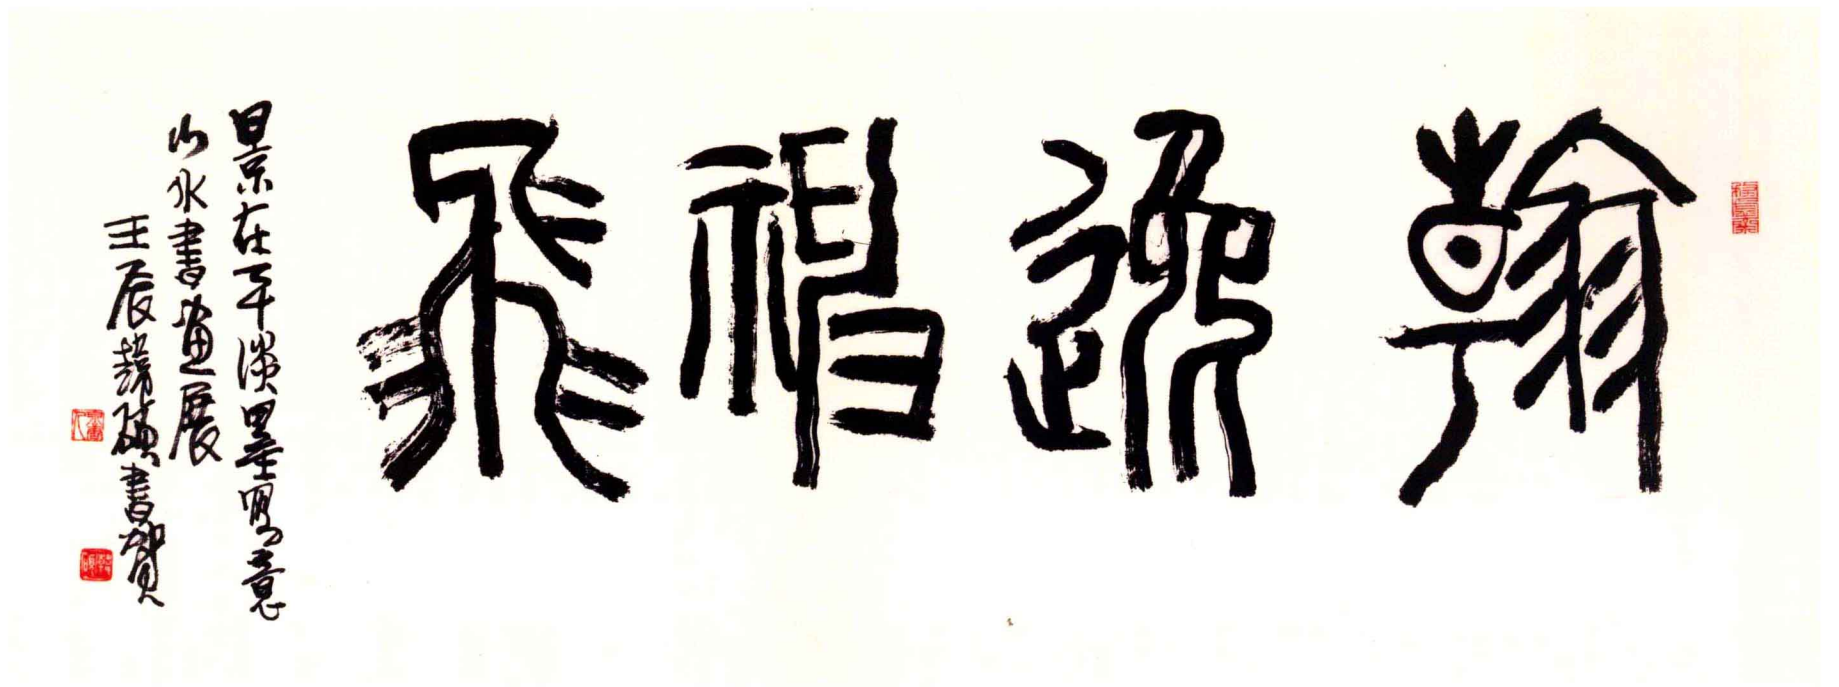 翰逸神飛
景在平淡墨寫意
山水書畫展
壬辰韓碩書賀